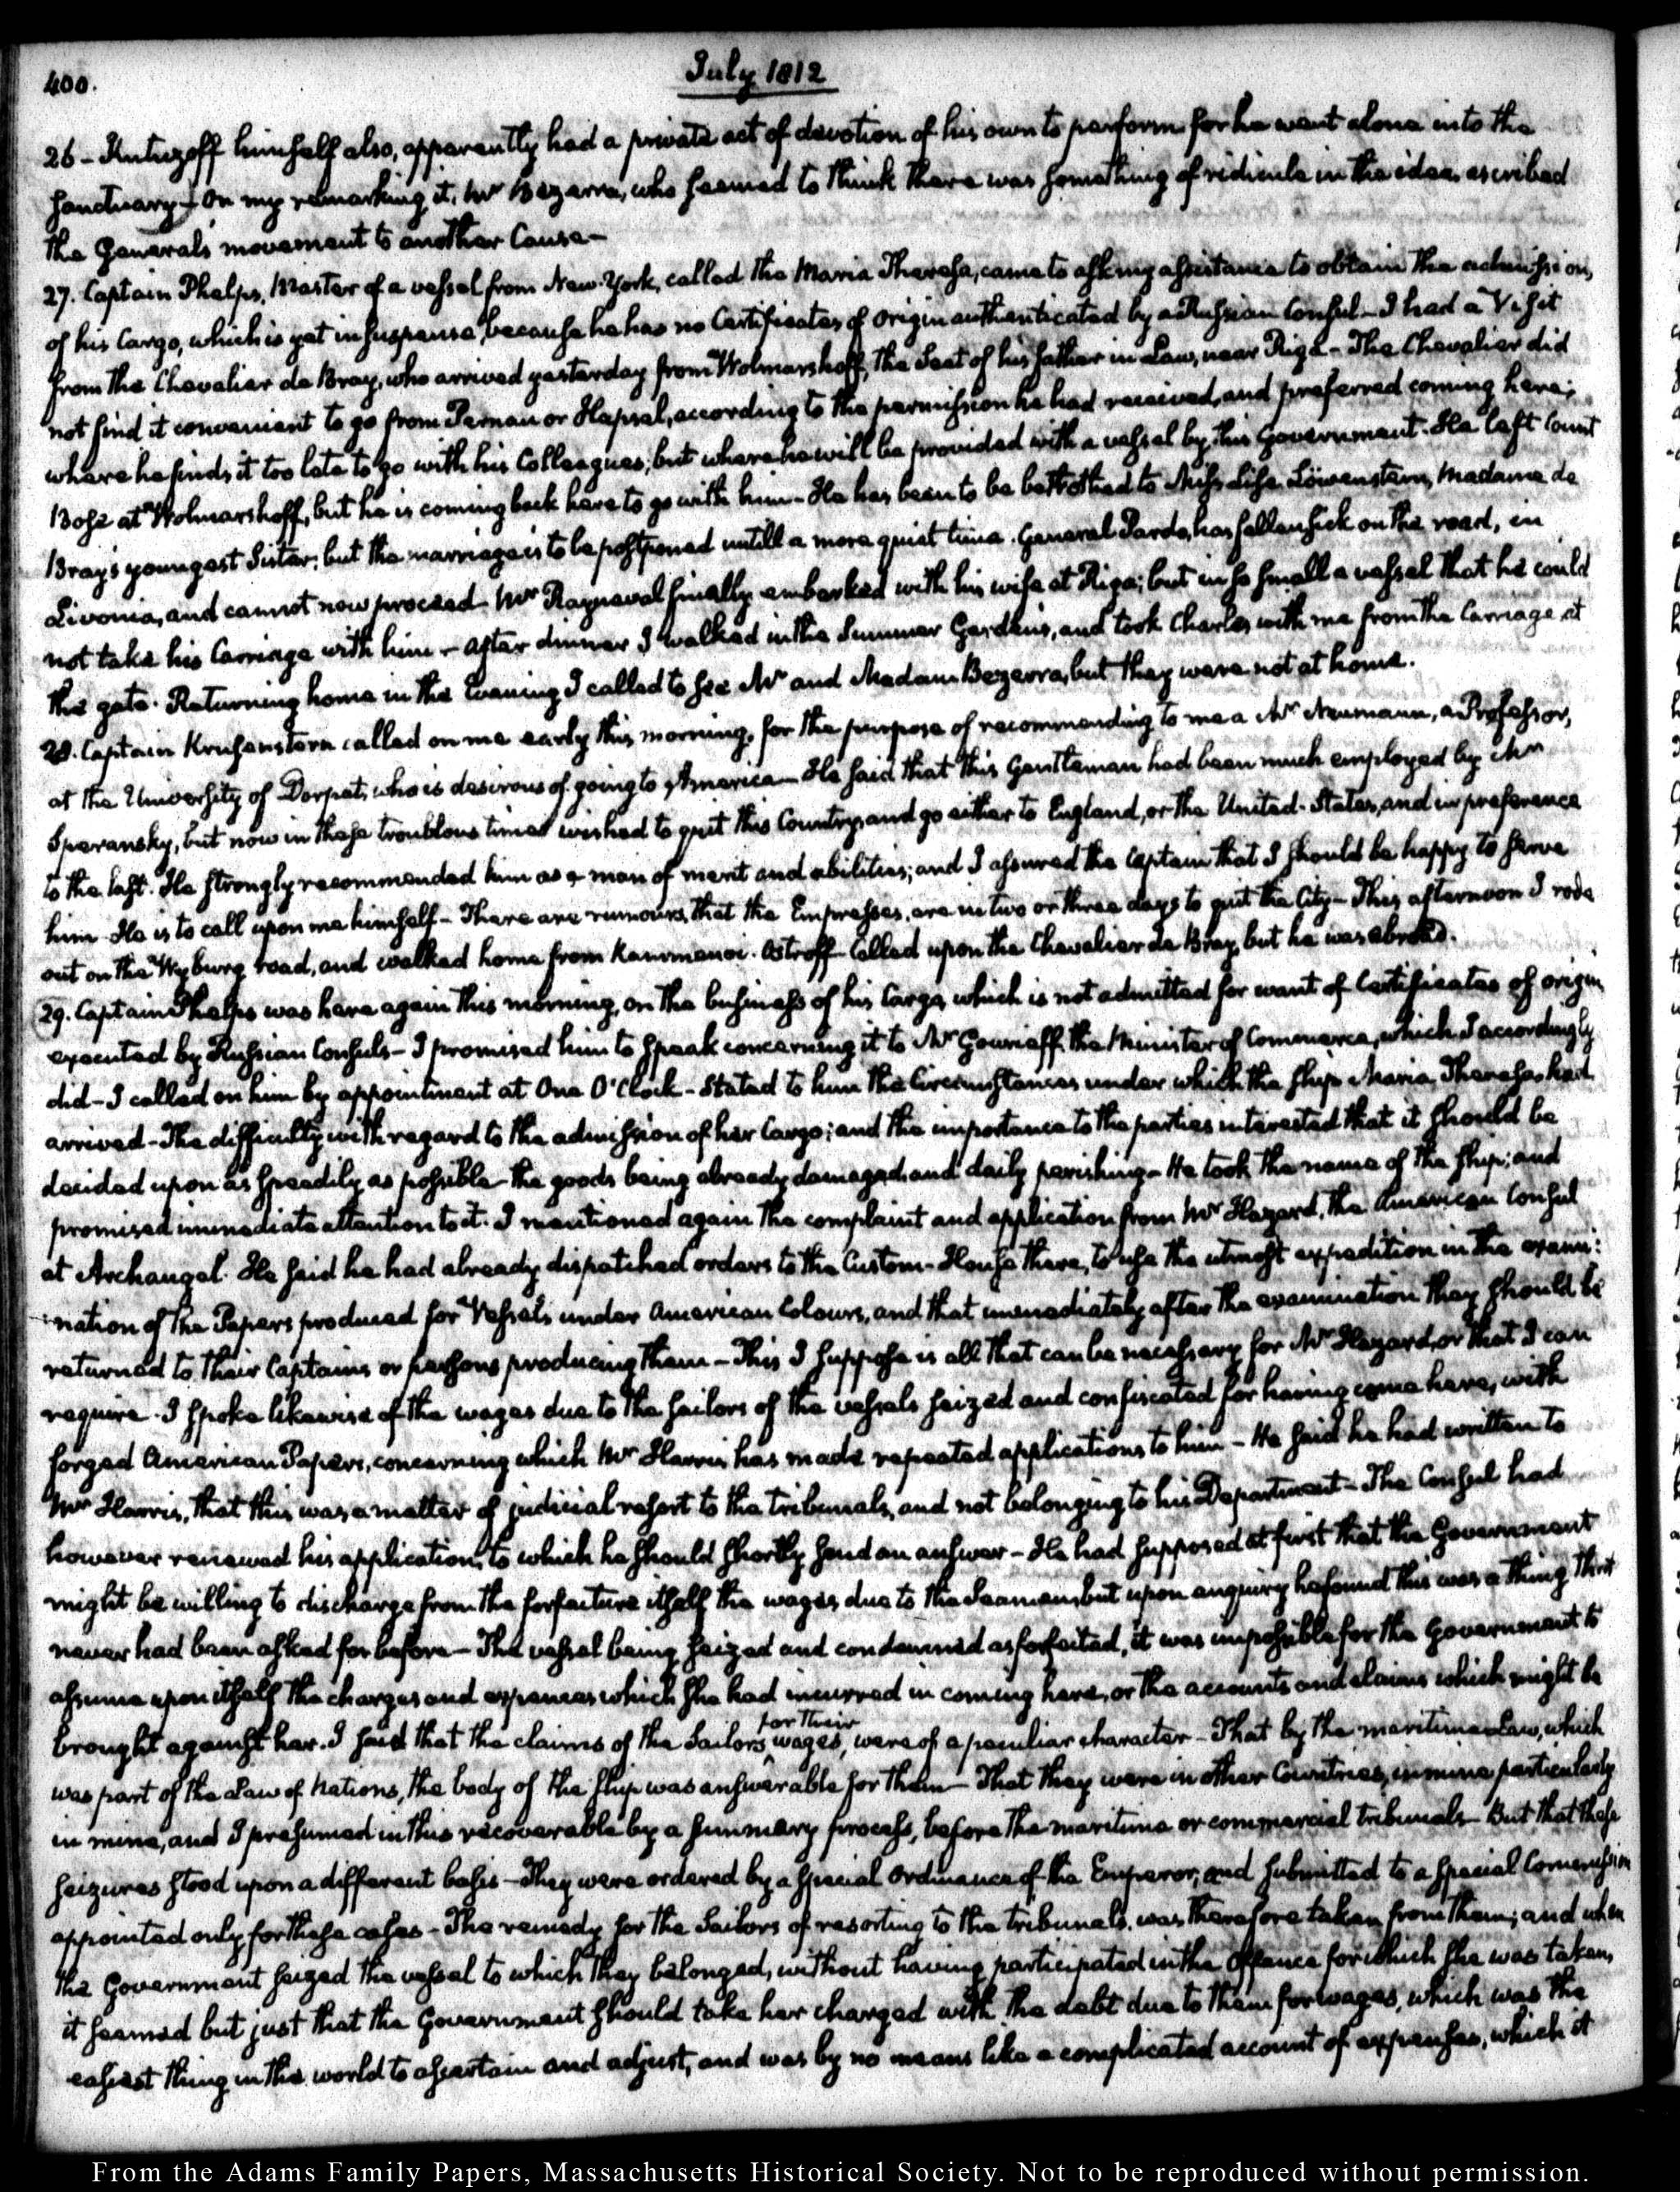 400.
July 1812
26 - Kutuzoff himself also, apparently had a private act of devotion of his own to perform for he went alone into the
Sanctuary - On my remarking it, Mr Bezarra, who seemed to think there was something of ridicule in the idea, ascribed
the General's movement to another Cause -
27. Captain Phelps, Master of a vessel from New-York, called the Maria Theresa, came to ask my assistance to obtain the admission,
of his Cargo, which is yet in suspense, because he has no Certificates of origin authenticated by a Russian Consul - I had a Visit
from the Chevalier de Bray, who arrived yesterday from Wolmarshoff, the Seat of his father in Law, near Riga - The Chevalier did
not find it convenient to go from Pernau or Hapsal, according to the permission he had received, and preferred coming here;
where he finds it too late to go with his Colleagues; but where he will be provided with a vessel by this Government. He left Count
Bose at Wolmarshoff, but he is coming back here to go with him - He has been to be betrothed to Miss Lise Löwenstern, Madame de
Bray's youngest Sister; but the marriage is to be postponed untill a more quiet time. General Pardo, has fallen sick on the road, in
Livonia, and cannot now proceed - Mr Rayneval finally embarked with his wife at Riga; but in so small a vessel that he could
not take his Carriage with him - After dinner I walked in the Summer Gardens, and took Charles with me from the Carriage at
the gate. Returning home in the Evening I called to see Mr and Madam Bezerra, but they were not at home.
28. Captain Krusenstern called on me early this morning, for the purpose of recommending to me a Mr Neumann, a Professor,
at the University of Dorpat, who is desirous of going to America - He said that this Gentleman had been much employed by Mr
Speransky, but now in these troublous times wished to quit this Country, and go either to England, or the United-States, and in preference
to the last. He strongly recommended him as a man of merit and abilities; and I assured the Captain that I should be happy to serve
him - He is to call upon me himself - There are rumours, that the Empresses, are in two or three days to quit the City - This afternoon I rode
out on the Wyburg road, and walked home from Kammenoi-Ostroff - Called upon the Chevalier de Bray, but he was abroad.
29. Captain Phelps was here again this morning, on the business of his Cargo, which is not admitted for want of Certificates of origin,
executed by Russian Consuls - I promised him to speak concerning it to Mr Gourieff, the Minister of Commerce, which I accordingly
did - I called on him by appointment at One O'Clock - Stated to him the Circumstances under which the ship Maria Theresa had
arrived - The difficulty with regard to the admission of her Cargo; and the importance to the parties interested that it should be
decided upon as speedily as possible - the goods being already damaged and daily perishing - He took the name of the ship; and
promised immediate attention to it. I mentioned again the complaint and application from Mr Hazard, the American Consul
at Archangel. He said he had already dispatched orders to the Custom-House there, to use the utmost expedition in the exami:
-nation of the Papers produced for Vessels under American Colours, and that immediately after the examination they should be
returned to their Captains or persons producing them - This I suppose is all that can be necessary for Mr Hazard, or that I can
require. I spoke likewise of the wages due to the sailors of the vessels seized and confiscated for having come here, with
forged American Papers, concerning which Mr Harris has made repeated applications to him - He said he had written to
Mr Harris, that this was a matter of judicial resort to the tribunals, and not belonging to his Department - The Consul had
however renewed his application, to which he should shortly send an answer - He had supposed at first that the Government
might be willing to discharge from the forfeiture itself the wages due to the Seamen; but upon enquiry he found this was a thing that
never had been asked for before - The vessel being seized and condemned as forfeited, it was impossible for the Government to
assume upon itself the charges and expences which she had incurred in coming here, or the accounts and claims which might be
brought against her. I said that the claims of the Sailors for their wages, were of a peculiar character - That by the maritime Law, which
was part of the Law of Nations, the body of the ship was answerable for them - That they were in other Countries, in mine particularly
in mine, and I presumed in this recoverable by a summary process, before the maritime or commercial tribunals - But that these
seizures stood upon a different basis - They were ordered by a special Ordinance of the Emperor, and submitted to a special Commission
appointed only for these cases - The remedy for the Sailors of resorting to the tribunals, was therefore taken from them; and when
the Government seized the vessel to which they belonged, without having participated in the offence for which she was taken,
it seemed but just that the Government should take her charged with the debt due to them for wages, which was the
easiest thing in the world to ascertain and adjust, and was by no means like a complicated account of expenses, which it
From the Adams Family Papers, Massachusetts Historical Society. Not to be reproduced without permission.